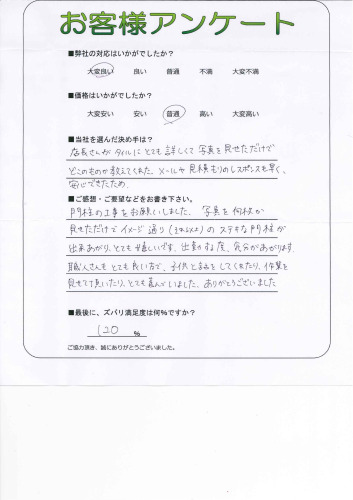 お客様アンケート
■弊社の対応はいかがでしたか?
大変良い 良い 普通 不満 大変不満
■価格はいかがでしたか?
大変安い 安い 普通 高い 大変高い
■当社を選んだ決め手は?
店長さんがタイルにとても詳しくて写真を見せただけで
どこのものか教えてくれた。メールや見積もりのレスポンスも早く、
安心できたため。
■ご感想・ご要望などをお書き下さい。
門柱の工事をお願いしました。写真を何枚か
見せただけでイメージ通り(それ以上)のステキな門柱が
出来あがり、とても嬉しいです。出来する度、気分があがります。
職人さんもとても良い方で、子供と話をしてくれたり、作業を
見せて頂いたり、とても喜んでいました。ありがとうございました
■最後に、ズバリ満足度は何%ですか?
120 %
ご協力頂き、誠にありがとうございました。